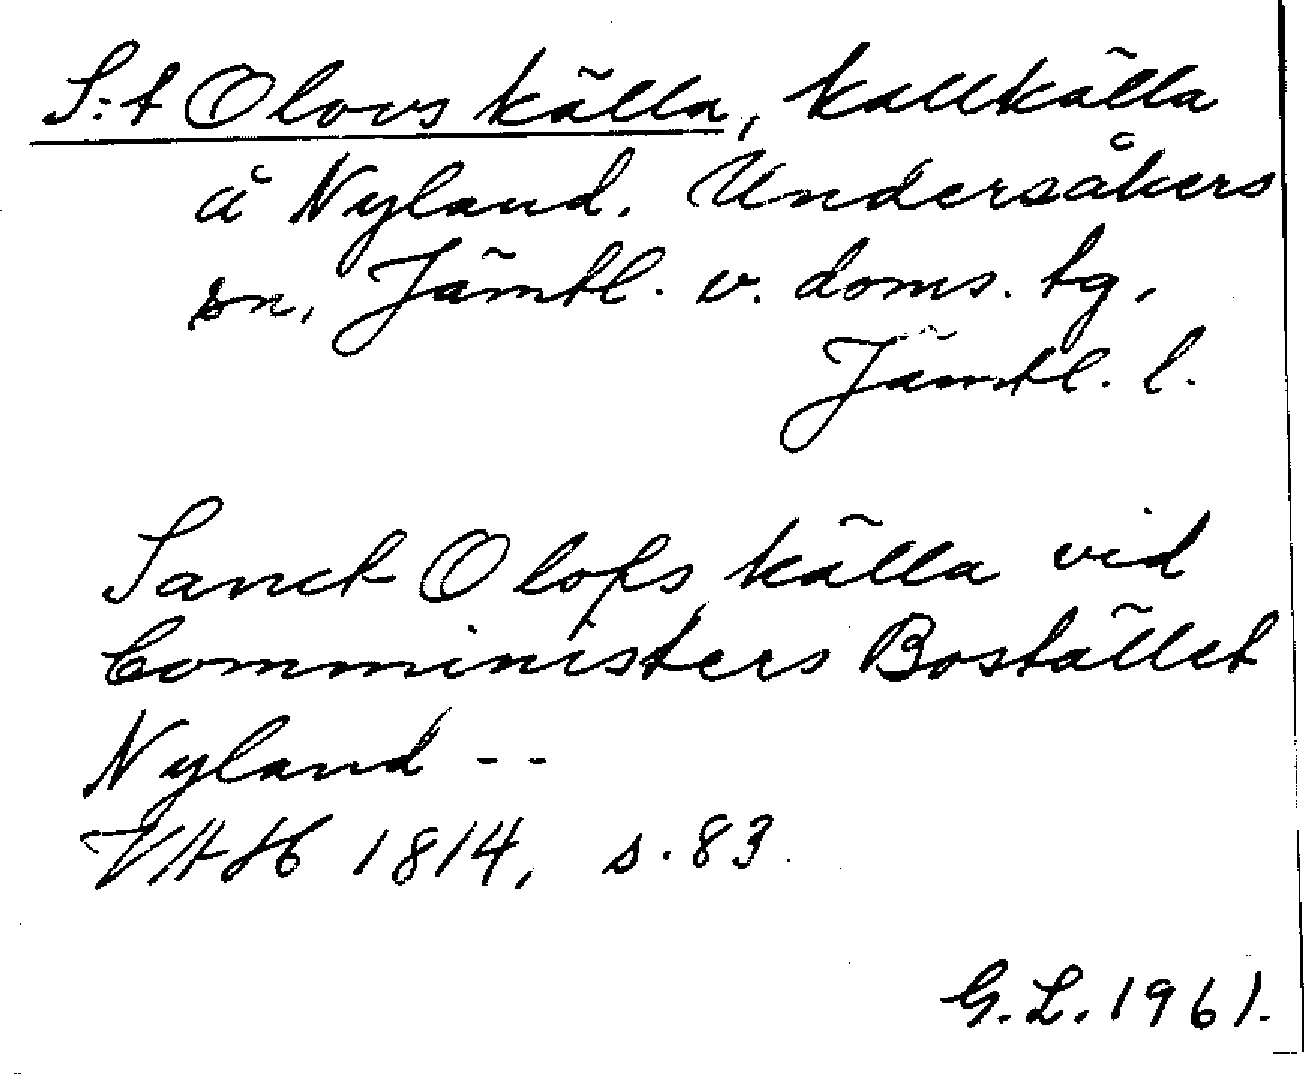 S:t Olovs källa, kallkälla
å Nyland. Undersåkers
sn, Jämtl. v. doms. tg,
Jämtl. l.
Sanct Olofs källa vid
Comministers Bostället
Nyland --
VAH 1814, s. 83.
G. L. 1961.